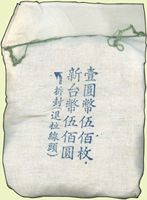 壹圓幣伍佰枚
新台幣伍佰圓
拆封退拉線頭)